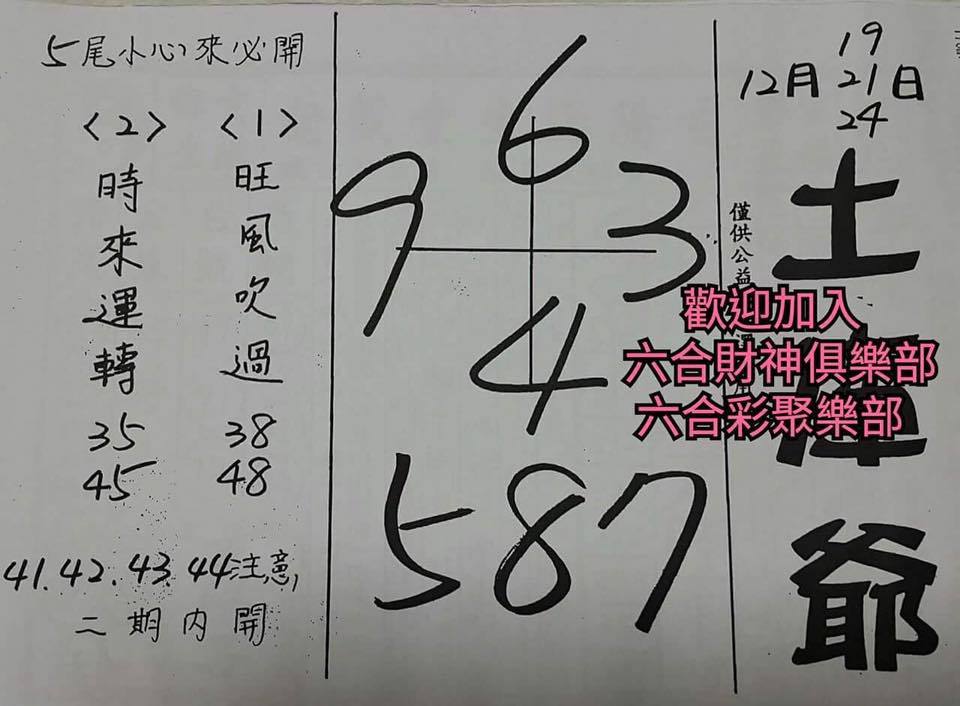 19
12月 21日
24
土
爺
僅供公益
歡迎加入
六合財神俱樂部
六合彩聚樂部
6
9 3
4
5 8 7
5尾小心來必開
〈1〉
旺風吹過
38
48
〈2〉
時來運轉
35
45
41.42.43.44注意,
二期內開